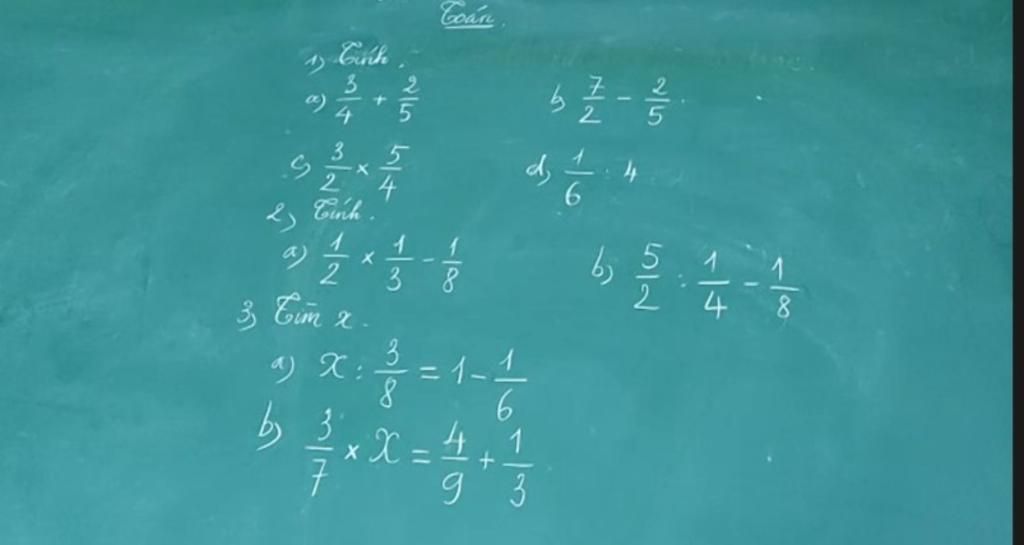 Toán.
1) Tính.
a) 3/4 + 2/5    b) 7/2 - 2/5.
c) 3/2 × 5/4    d) 1/6 : 4
2) Tính.
a) 1/2 × 1/3 - 1/8    b) 5/2 : 1/4 - 1/8
3) Tìm x.
a) x : 3/8 = 1 - 1/6
b) 3/7 × x = 4/9 + 1/3